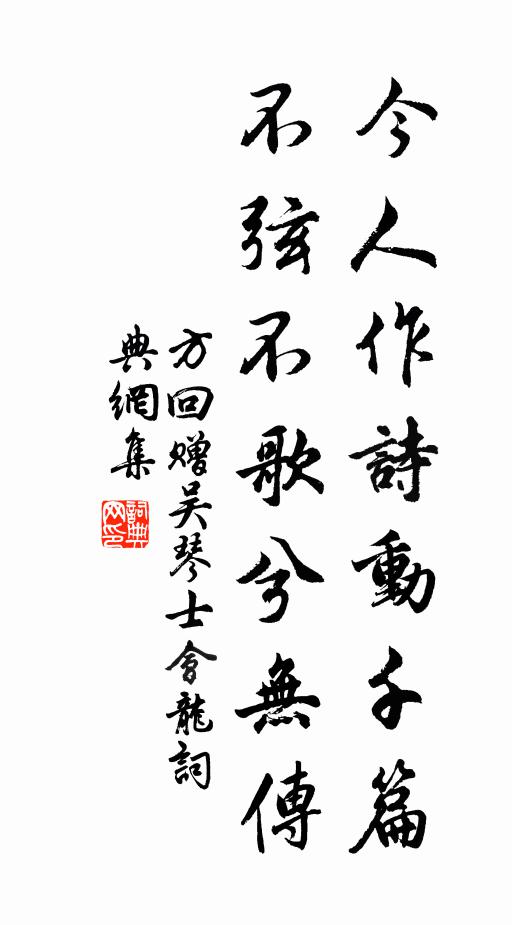 今人作詩動千篇
不弦不歌兮無傳
方回贈吴琴士會龍詞
典網集
詞典
网印